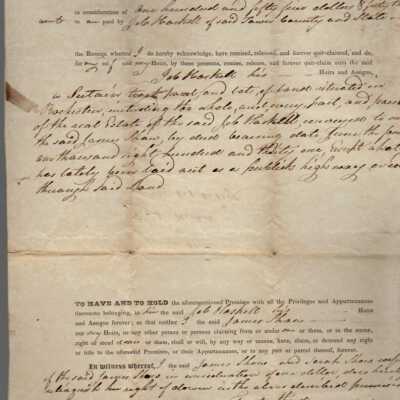 in consideration of one hundred and fifty four dollar & fifty
cents to me paid by Job Haskell of said Town, County and State
the Receipt whereof I do hereby acknowledge, have remised, released, and forever quit-claimed, and do,
for my self and my Heirs, by these presents, remise, release, and forever quit-claim unto the said
Job Haskell his Heirs and Assigns,
a Certain tract, parcel and lot, of land situated in
including the whole, and every part, and parcel
of the real Estate of the said Job Haskell conveyed to me
the said James Shaw, by deed bearing date June the
one thousand eight hundred and thirty one, except what
has lately been laid out as a publick highway over
through said Land
TO HAVE AND TO HOLD the aforementioned Premises with all the Privileges and Appurtenances
thereunto belonging, to him the said Job Haskell his Heirs
and Assigns forever; so that neither I the said James Shaw
nor my Heirs, or any other person or persons claiming from or under me or them, or in the name,
right or stead of me or them, shall or will, by any way or means, have, claim, or demand any right
or title to the aforesaid Premises, or their Appurtenances, or to any part or parcel thereof, forever.
In witness whereof, I the said James Shaw and Sarah Shaw wife
of the said James Shaw in consideration of one dollar, does hereby
her right of dower in the above described premises